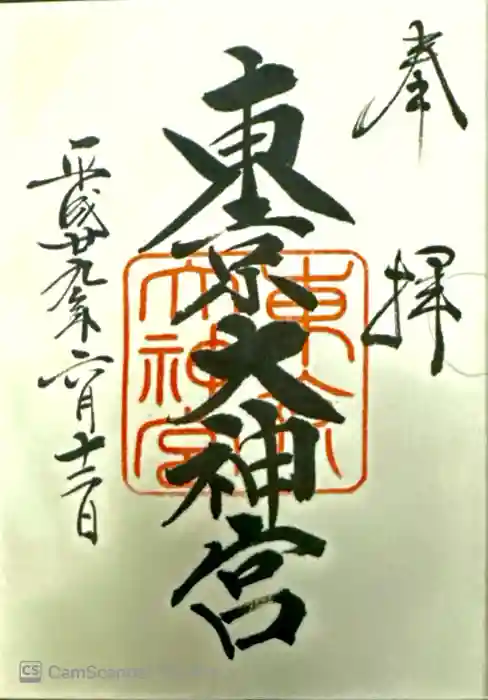 奉拝
東京大神宮
東京
大神宮
平成廿九年六月十二日
CS CamScanner